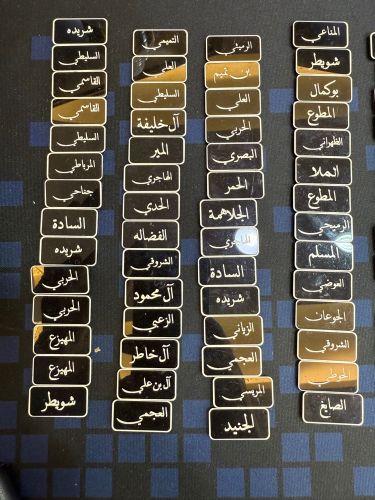 المناعي
شويطر
بوكمال
المطوع
الظهراني
الملا
المطوع
الرميحي
المسلم
العوضي
الجوعان
الشروقي
الحوطي
الصايغ
الرميثي
بن تميم
العلي
الحربي
البصري
الحمر
الجلاهمة
الهاجري
السادة
شريده
الزياني
العجمي
المريسي
لجنيد
التميمي
العلي
السليطي
آل خليفة
المير
الهاجري
الحدي
الفضاله
الشروقي
آل محمود
الزعبي
آل خاطر
آل بن علي
العجمي
شريده
السليطي
القاسمي
القاسمي
السليطي
المرباطي
جناحي
السادة
شريده
الحربي
الحربي
المهيزع
المهيزع
شويطر